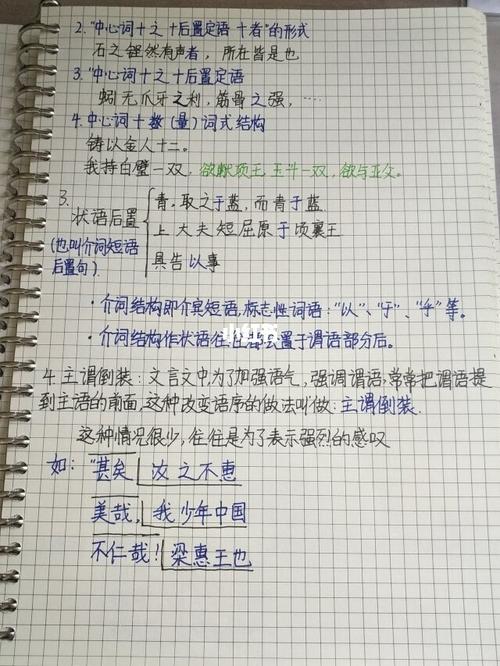 2."中心词十之十后置定语十者"的形式
石之铿然有声者，所在皆是也
3."中心词十之十后置定语
蚓无爪牙之利，筋骨之强，……
4.中心词十数(量)词式结构
铸以金人十二。
我持白璧一双，欲献项王，玉斗一双，欲与亚父。
3.
状语后置
(也叫介词短语后置句).
青，取之于蓝，而青于蓝
上大夫短屈原于顷襄王
具告以事
·介词结构即介宾短语，标志性词语："以"、"于"、"乎"等。
·介词结构作状语往往都会置于谓语部分后。
小红书
4.主谓倒装：文言文中，为了加强语气，强调谓语，常常把谓语提
到主语的前面，这种改变语序的做法叫做：主谓倒装.
这种情况很少，往往是为了表示强烈的感叹
如："甚矣 汝之不惠
美哉，我少年中国
不仁哉！梁惠王也